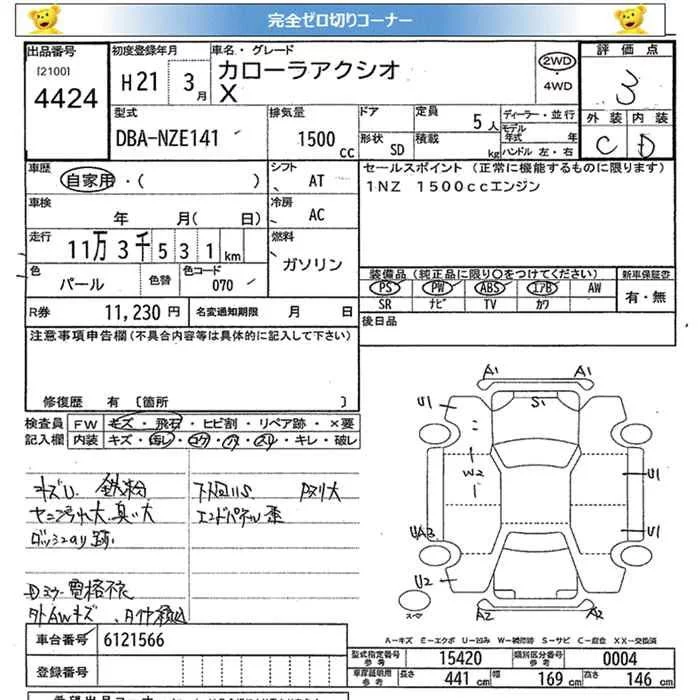 完全ゼロ切りコーナー
出品番号
[2100]
4424
初度登録年月
H21 3月
車名・グレード
カローラアクシオ
X
2WD
・
4WD
評価点
3
外装 内装
C D
型式
DBA-NZE141
排気量
1500cc
ドア
形状 SD
定員
5人
積載
kg
ディーラー・並行
モデル年式 年
ハンドル 左・右
車歴
自家用・( )
シフト
AT
セールスポイント (正常に機能するものに限ります)
1NZ 1500ccエンジン
車検
年 月( 日)
冷房
AC
走行
11万3千531km
燃料
ガソリン
色
パール
色替
色コード
070
装備品 (純正品に限り○をつけてください)
PS PW ABS エアB AW
SR ナビ TV カワ
新車保証書
有・無
R券 11,230 円
名変通知期限 月 日
後日品
注意事項申告欄(不具合内容等は具体的に記入して下さい)
修復歴 有 [箇所 ]
検査員
記入欄
FW キズ・飛石・ヒビ割・リペア跡・×要
内装 キズ・キレ・破レ
キズU 鉄粉
Pヌリ大
エンドパネル歪
A1 A1
U1 S1
W2
U1
U1
U2
A2 A2
スペア
A-キズ E-エクボ U-凹み W-補修跡 S-サビ C-腐食 XX-交換済
車台番号 6121566
登録番号
型式指定番号
参考
15420
類別区分番号
参考
0004
車庫証明用
参考
長さ 441 cm 幅 169 cm 高さ 146 cm
希望出品コーナー